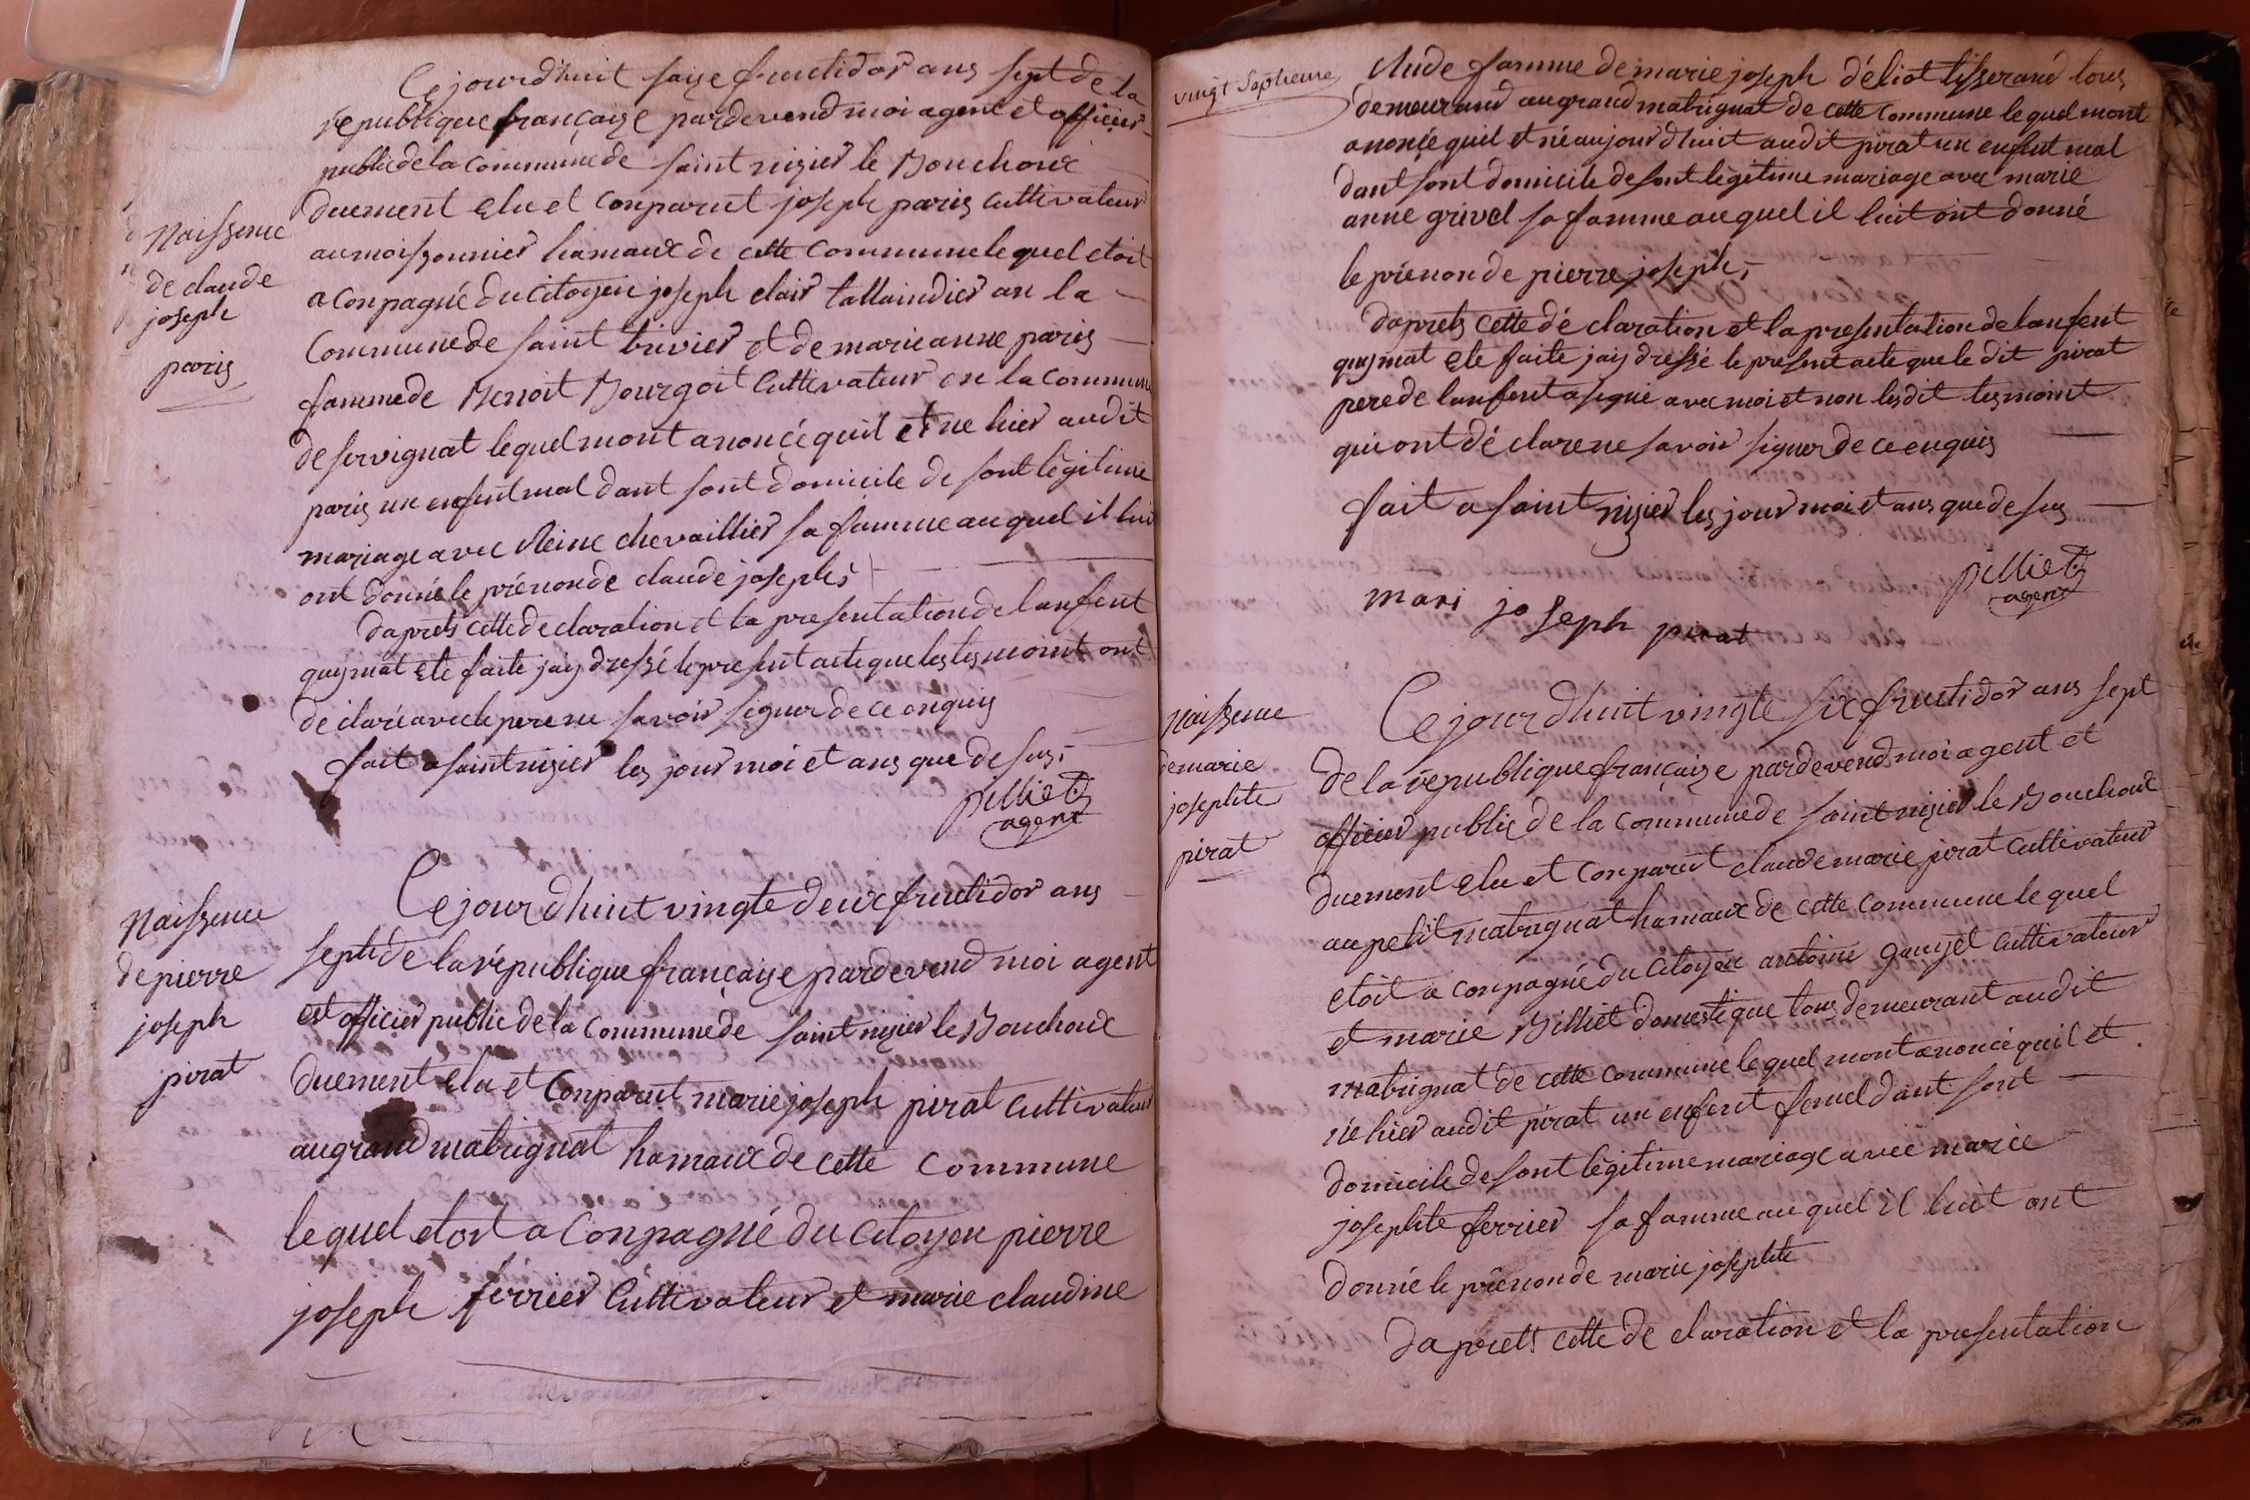 Ce jourd'huit saise fructidor ans sept de la
république françaize pardevend moi agent et officier
public de la commune de saint nizier le Bouchoux
duement elu et conparut joseph paris cultivateur
au moissonnier hamaux de cette commune le quel etoit
a conpagné du citoyen joseph clair tallaindier an la
commune de saint trivier et de marie anne paris
famme de Benoit Bourgoit cultivateur en la commune
de servignat le quel mont anoncé quil et ne hier audit
paris un enfent mal dant sont domicile de sont légitime
mariage avec Reine chevaillier sa famme au quel il luit
ont donné le prénon de claude joseph
Naissence
de claude
joseph
paris
daprets cette declaration et la presentation de lanfent
quymat ete faite jaiy dressé le present acte que les tesmoint ont
déclaré avec le pere ne savoir signer de ce enquis
fait a saint nizier les jour moi et ans que de sus
pilliet
agent
Naissence
de pierre
joseph
pirat
Ce jour dhuit vingte deux fructidor ans
sept de la république françaize pardevend moi agent
et officier public de la commune de saint nizier le Bouchoux
duement elu et conparut marie joseph pirat cultivateur
au grand matrignat hamaux de cette commune
le quel etoit a conpagné du citoyen pierre
joseph ferrier cultivateur et marie claudine
vingt septieme
clude famme de marie joseph déliot tisserand tous
demeurand au grand matrignat de cette commune le quel mont
anoncé quil et né aujourdhuit audit pirat un enfent mal
dant sont domicile de sont légitime mariage avec marie
anne grivel sa famme au quel il luit ont donné
le prénon de pierre joseph
daprets cette déclaration et la presentation de lanfent
quymat ete faite jaiy dressé le present acte que le dit pirat
pere de lanfent a signé avec moi et non lesdit tesmoint
qui ont déclare ne savoir signer de ce enquis
fait a saint nizier les jour moi et ans que de sus
pilliet
agent
mari joseph pirat
Naissence
de marie
josephte
pirat
Ce jour dhuit vingte six fructidor ans sept
de la république françaize pardevend moi agent et
officier public de la commune de saint nizier le Bouchoux
duement elu et conparut claude marie pirat cultivateur
au petit matrignat hamaux de cette commune le quel
etoit a conpagné du citoyen antoine gauzet cultivateur
et marie Billiet domestique tous demeurant audit
matrignat de cette commune le quel mont anoncé quil et
né hier audit pirat un enfent femel dant sont
domicile de sont légitime mariage avec marie
josephte ferrier sa famme au quel il luit ont
donné le prénon de marie josephte
daprets cette declaration et la presentation